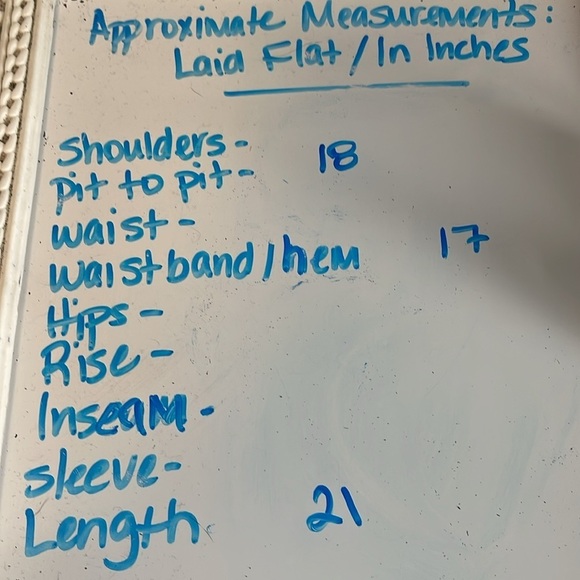 Approximate Measurements:
Laid Flat / In Inches
Shoulders -
pit to pit - 18
waist -
waistband / hem 17
Hips -
Rise -
Inseam -
sleeve -
Length 21